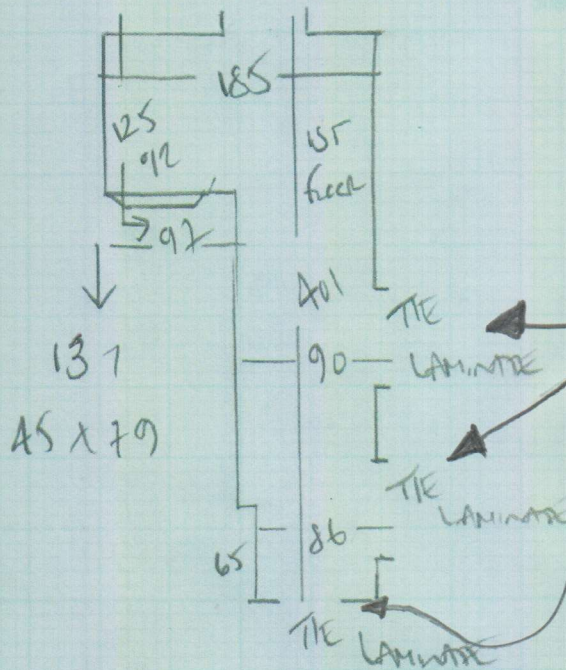 185
125
92
1ST
FLOOR
97
401
TIE
LAMINATE
137
90
45 X 79
TIE
LAMINATE
86
65
TIE
LAMINATE